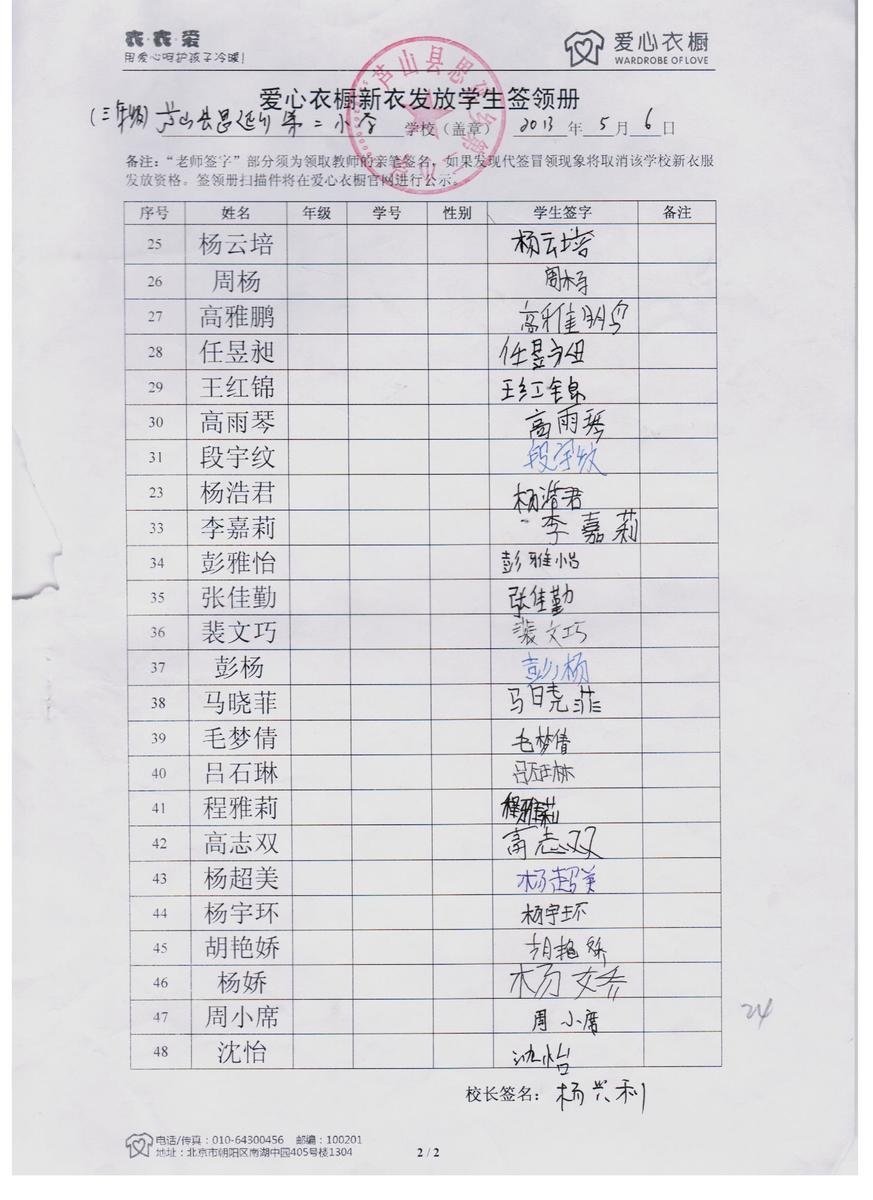 衣·衣·爱
用爱心呵护孩子冷暖!
爱心衣橱
WARDROBE OF LOVE
爱心衣橱新衣发放学生签领册
(三年级) 芦山县思延乡第二小学 学校（盖章） 2013 年 5 月 6 日
芦山县思延乡第二
备注：“老师签字”部分须为领取教师的亲笔签名，如果发现代签冒领现象将取消该学校新衣服
发放资格。签领册扫描件将在爱心衣橱官网进行公示。
序号 姓名 年级 学号 性别 学生签字 备注
25 杨云培 杨云培
26 周杨 周杨
27 高雅鹏 高雅鹏
28 任昱昶 任昱昶
29 王红锦 王红锦
30 高雨琴 高雨琴
31 段宇纹 段宇纹
23 杨浩君 杨浩君
33 李嘉莉 李嘉莉
34 彭雅怡 彭雅怡
35 张佳勤 张佳勤
36 裴文巧 裴文巧
37 彭杨 彭杨
38 马晓菲 马晓菲
39 毛梦倩 毛梦倩
40 吕石琳 吕石琳
41 程雅莉 程雅莉
42 高志双 高志双
43 杨超美 杨超美
44 杨宇环 杨宇环
45 胡艳娇 胡艳娇
46 杨娇 杨娇
47 周小席 周小席
48 沈怡 沈怡
24
校长签名： 杨兴利
电话/传真：010-64300456 邮编：100201
地址：北京市朝阳区南湖中园405号楼1304
2 / 2